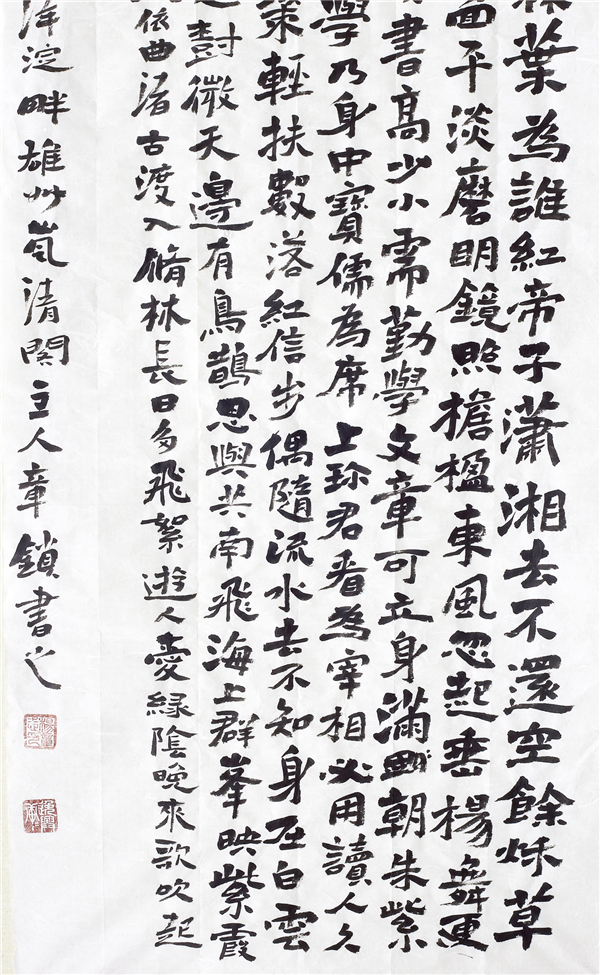 葉為誰紅帝子瀟湘去不還空餘秋草
面平淡磨明鏡照檐楹東風忽起垂楊舞更
書高少小需勤學文章可立身滿朝朱紫
學乃身中寶儒為席上珍君看為宰相必用讀人久
策輕扶數落紅信步偶隨流水去不知身在白雲
對微天邊有鳥鵲思與共南飛海上群峯映紫霞
依曲渚古渡入脩林長日多飛絮遊人愛緑陰晚來歌吹起
洋淀畔雄州嵐清閣主人章鎖書之